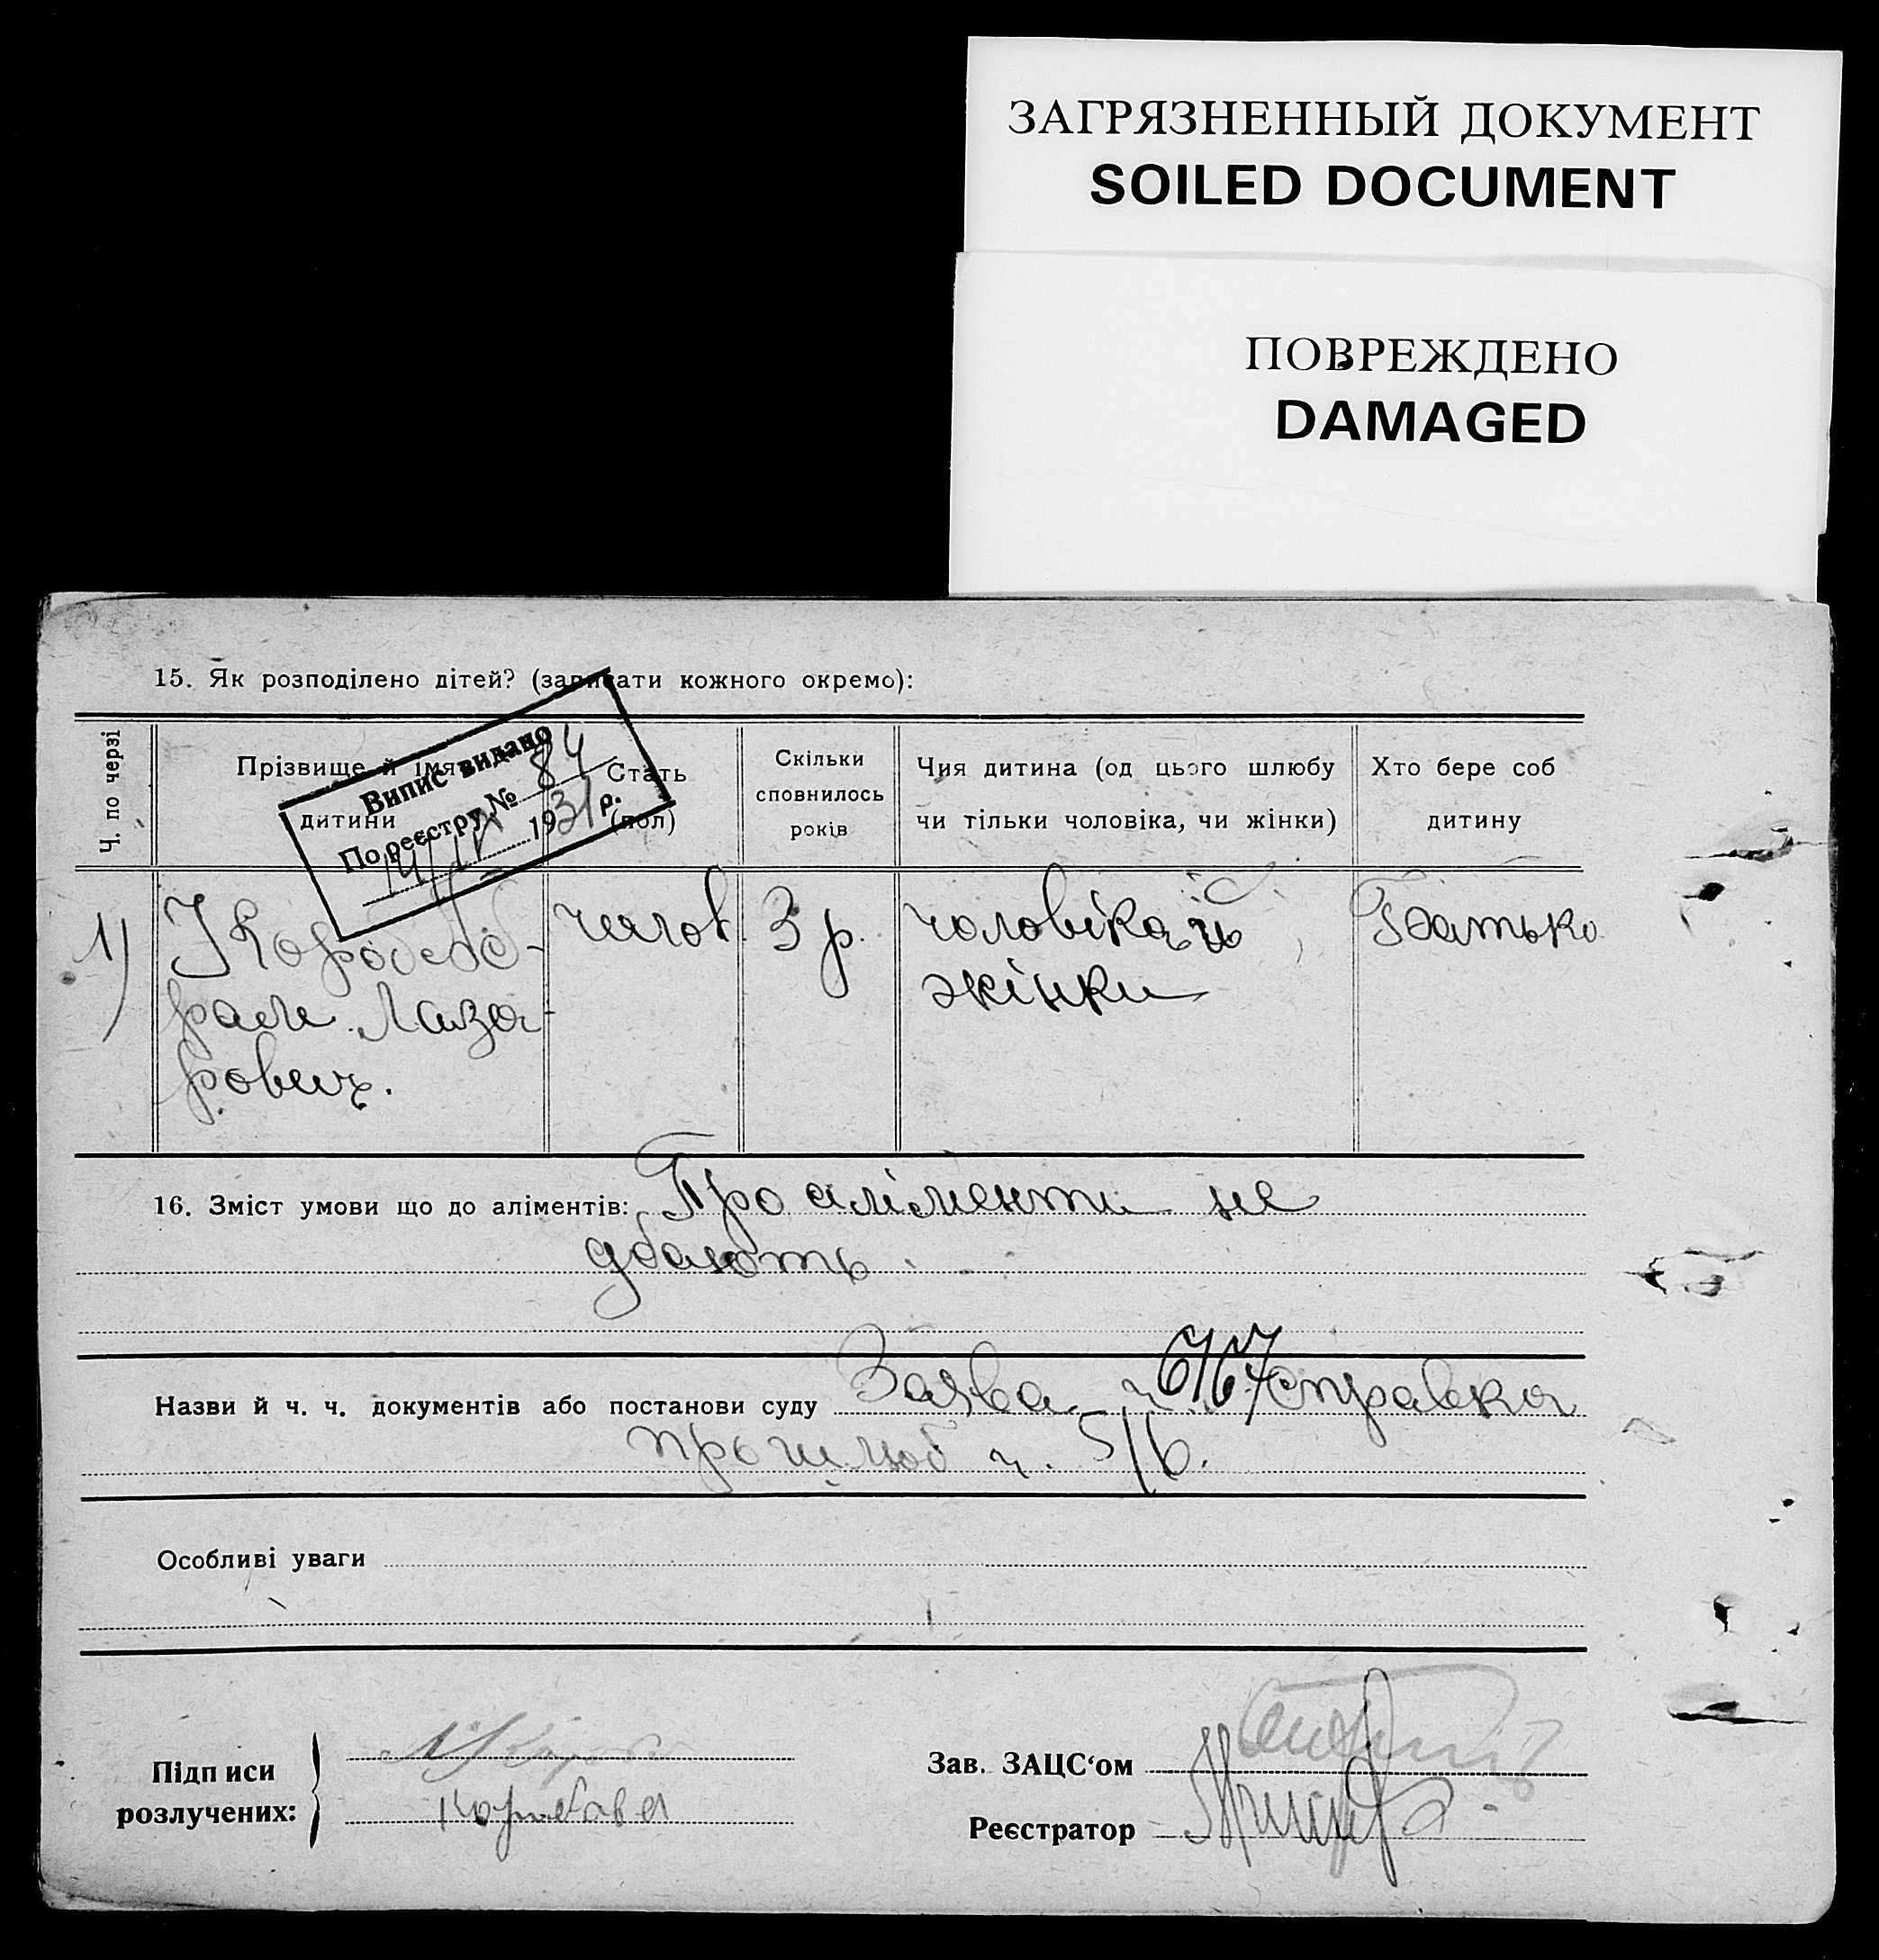 ЗАГРЯЗНЕННЫЙ ДОКУМЕНТ
SOILED DOCUMENT
ПОВРЕЖДЕНО
DAMAGED
15. Як розподілено дітей? (записати кожного окремо):
Ч. по черзі
Прізвище й імя
дитини
Стать
(пол)
Скільки
сповнилось
років
Чия дитина (од цього шлюбу
чи тільки чоловіка, чи жінки)
Хто бере соб
дитину
Випис видано
По реєстру № 84
14/IX 1931 р.
1)
Лаза-
рович.
челов.
3 р.
чоловіка й
жінки
Батько
16. Зміст умови що до аліментів: Про аліменти не
дбають.
Назви й ч. ч. документів або постанови суду Заява ч. 6/67 справка
про шлюб ч. 5/6.
Особливі уваги
Підписи
розлучених:
Зав. ЗАЦС‘ом
Реєстратор